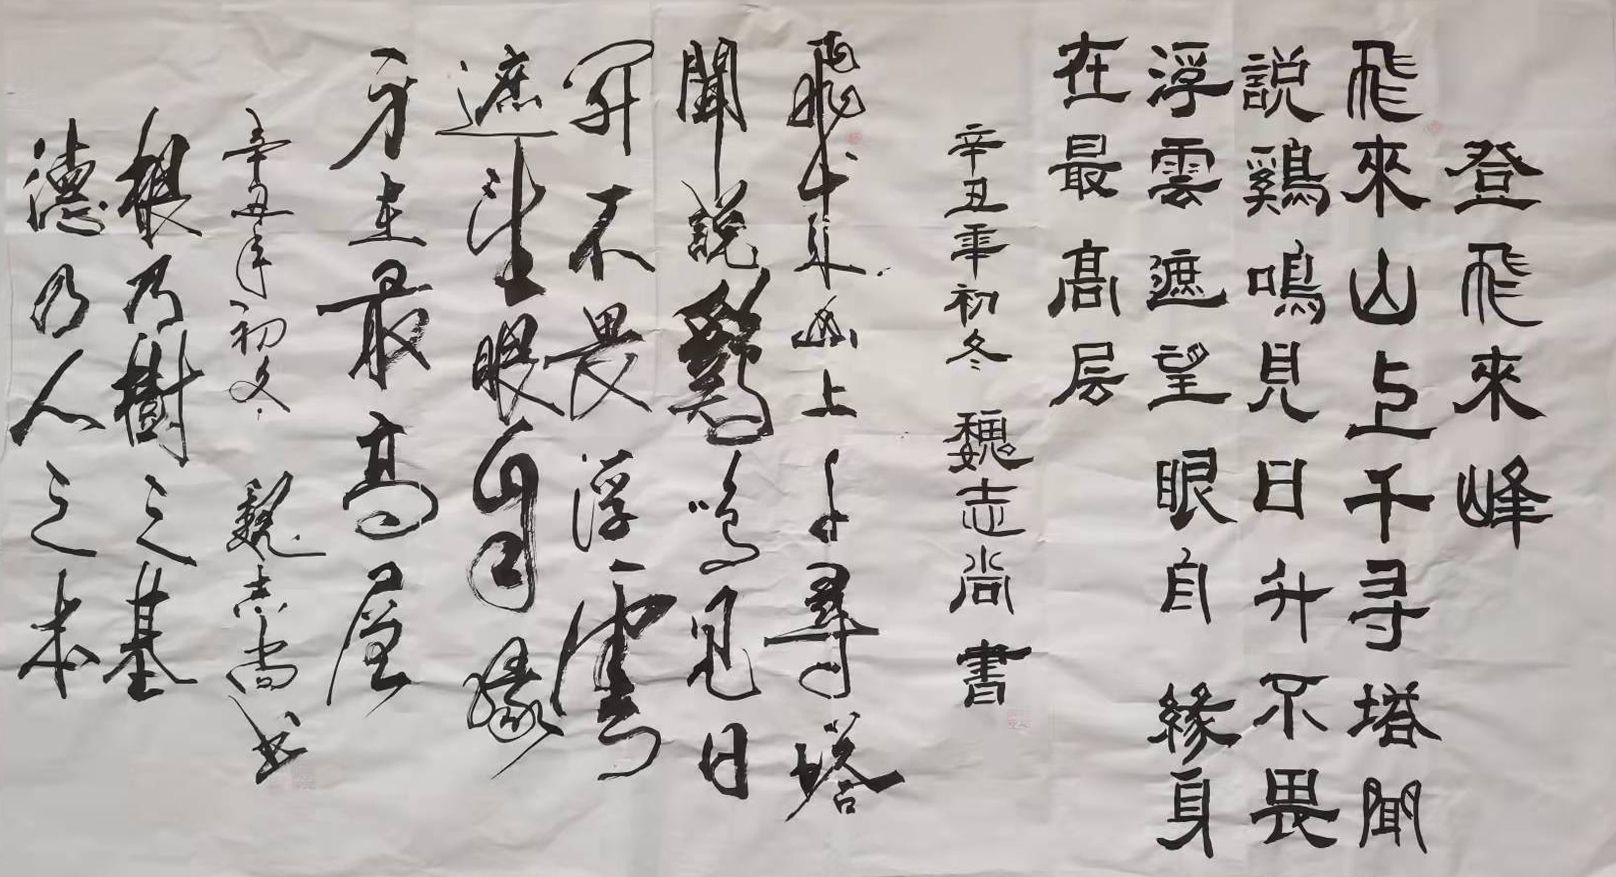 登飛來峰
飛來山上千寻塔聞
説鷄鳴見日升不畏
浮雲遮望眼自緣身
在最高层
辛丑年初冬 魏志尚書
飛來山上千尋塔
聞説鷄鳴見日
升不畏浮雲
遮望眼自緣
身在最高層
辛丑年初冬 魏志尚书
根乃樹之基
德乃人之本